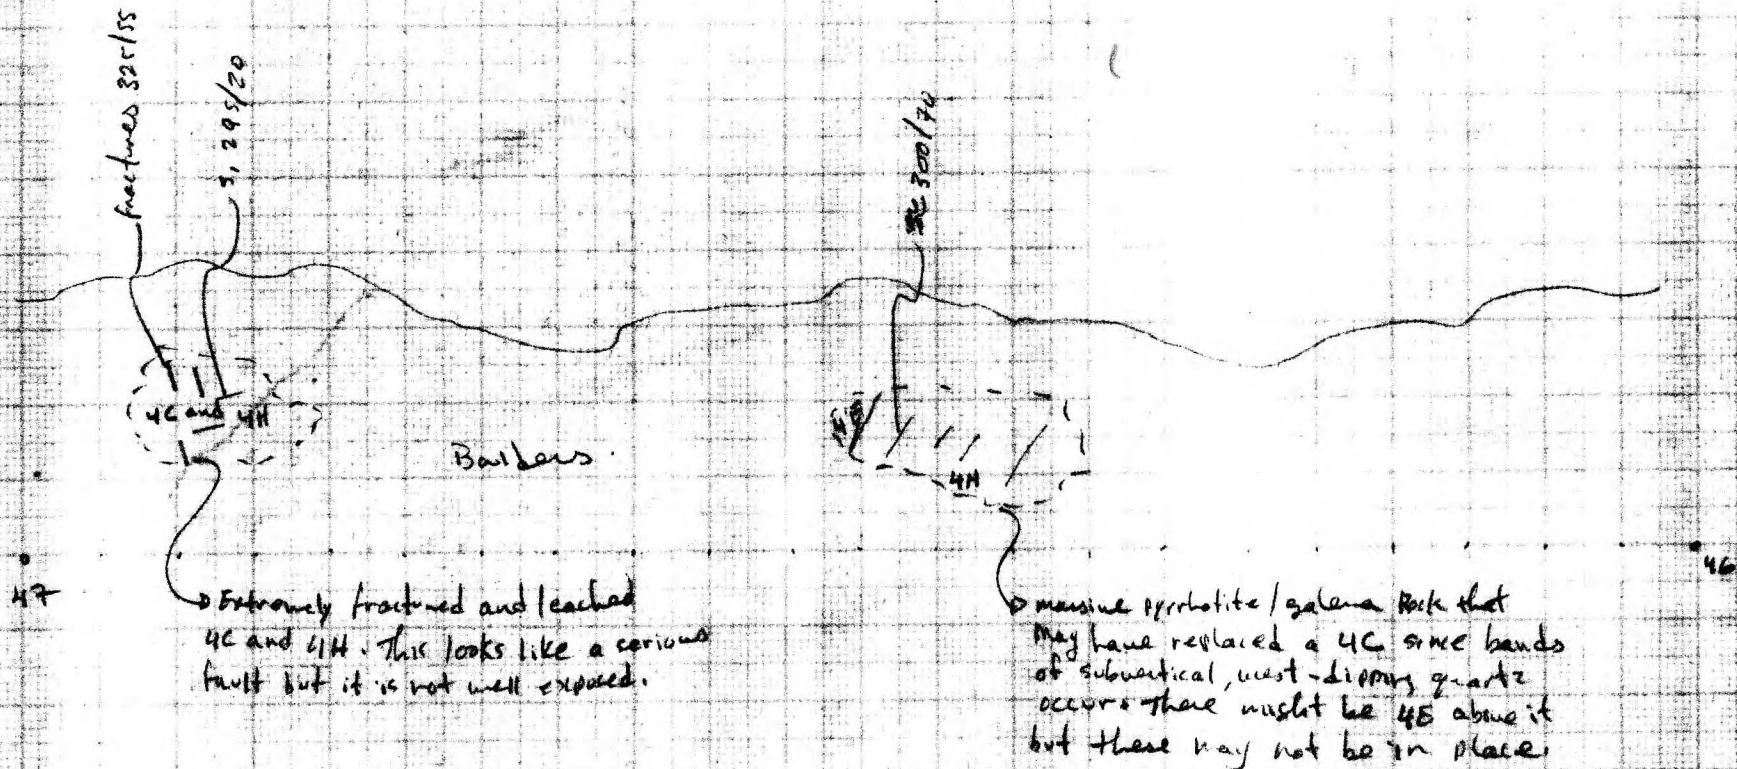 fractures 325/55
S, 295/20
300/70
4C and 4H
Balders.
4H
47
46
Extremely fractured and leached
4C and 4H. This looks like a serious
fault but it is not well exposed.
massive pyrrhotite/galena Rock that
may have replaced a 4C since bands
of subvertical, west-dipping quartz
occur. There might be 4E above it
but these may not be in place.